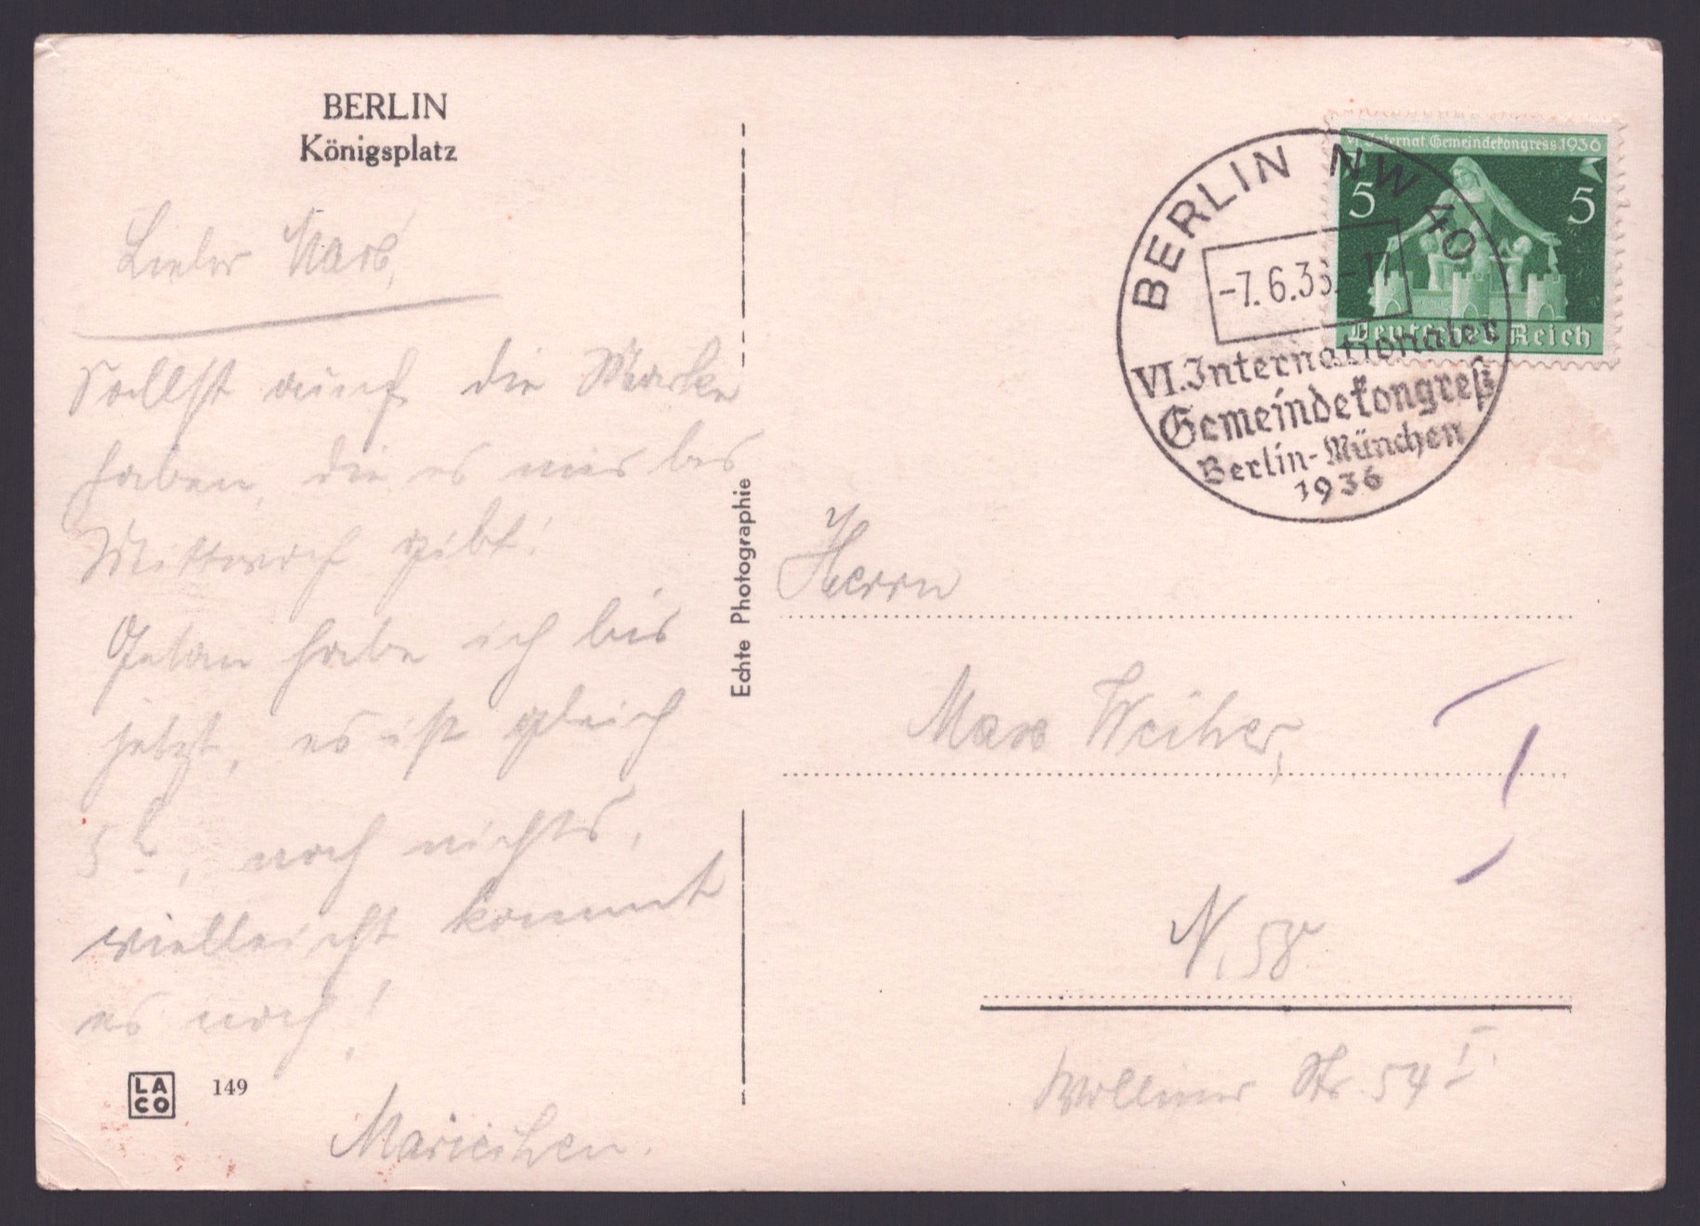 BERLIN
Königsplatz
Lieber Max,
Sollst auch die Marke
haben, die es nur bis
Mittwoch gibt!
Getan habe ich bis
jetzt, es ist gleich
5 h, noch nichts,
vielleicht kommt
es noch!
Mariechen.
LA
CO
149
Echte Photographie
VI. Internat. Gemeindekongress 1936
5 5
Deutsches Reich
BERLIN NW 40
-7.6.36.-17
VI. Internationaler
Gemeindekongreß
Berlin-München
1936
Herrn
Max Weiher,
N. 58
Wolliner Str. 54 I.